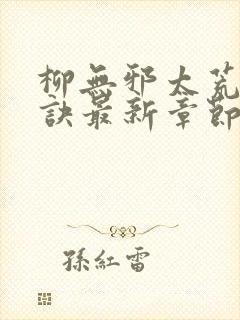 柳無邪太荒
訣最新章節
孫紅雷